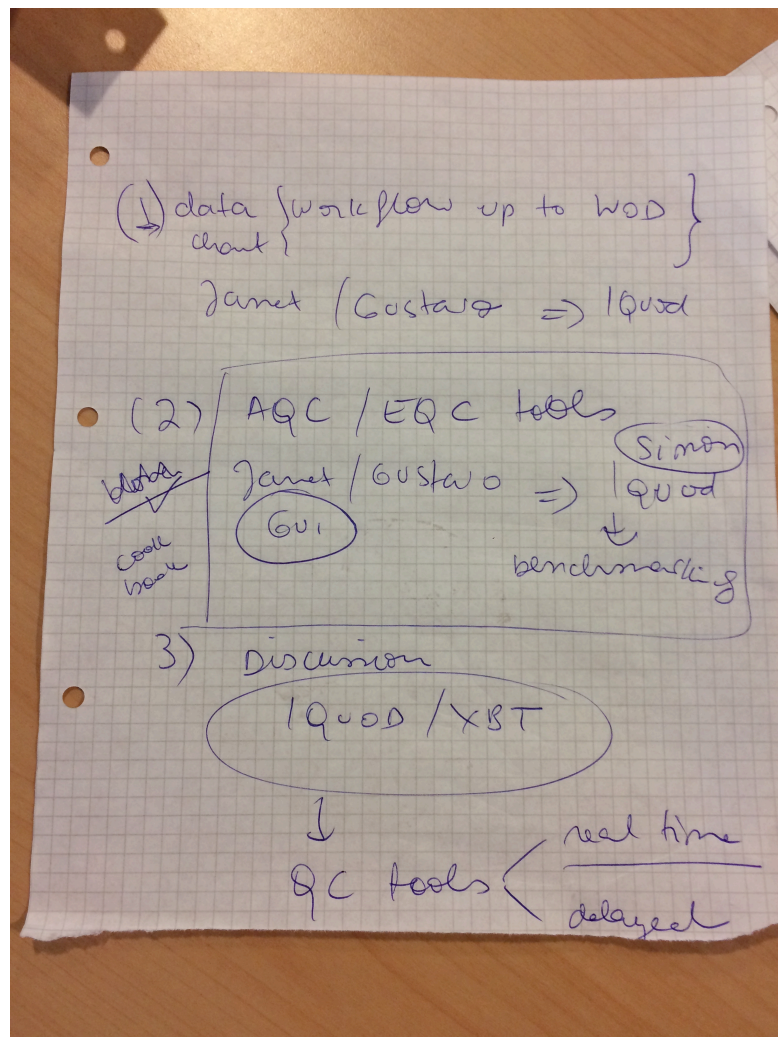 (1) data {workflow up to WOD}
chart
Janet / Gustavo => IQuod
(2) AQC / EQC tools
Simon
Janet / Gustavo => IQuod
Gui
cook
book
benchmarking
3) Discussion
IQUOD / XBT
↓
QC tools < real time
delayed